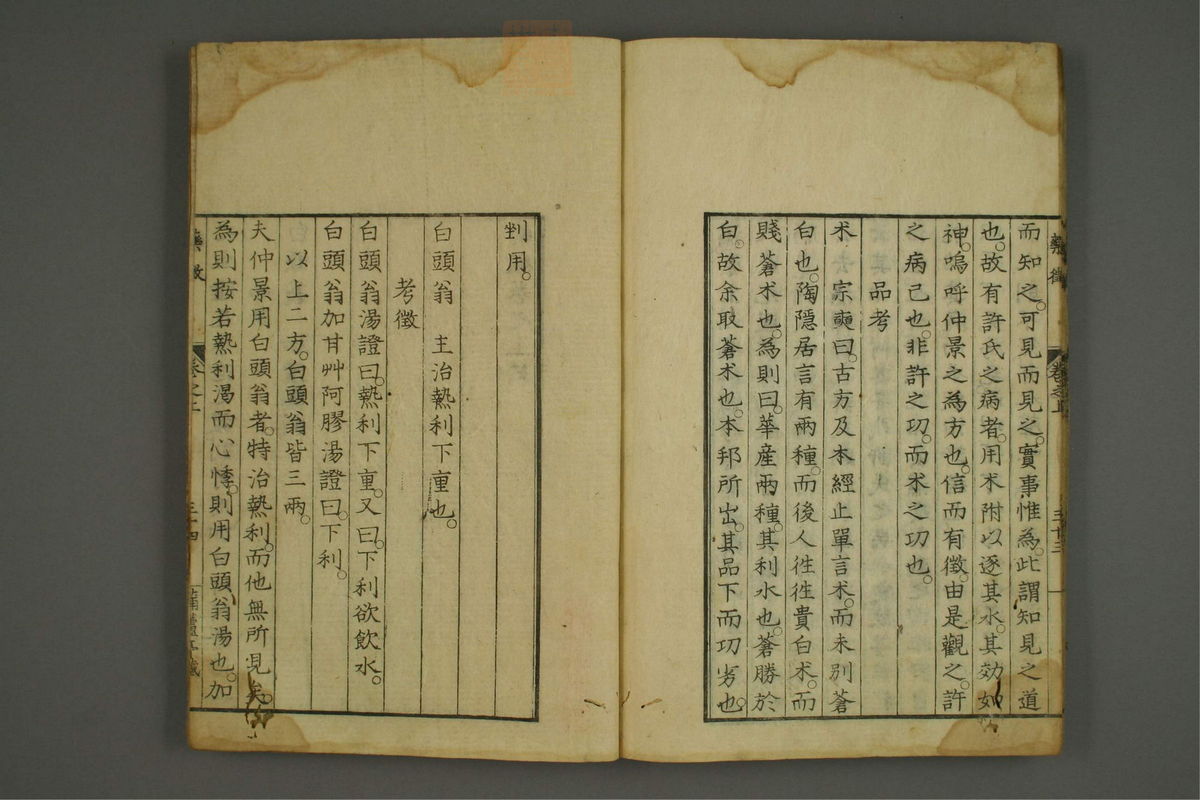 藥徵 卷之上 三十三
而知之。可見而見之。實事惟為。此謂知見之道
也。故有許氏之病者。用朮附以逐其水。其効如
神。嗚呼仲景之為方也。信而有徵。由是觀之。許
之病已也。非許之功。而朮之功也。
品考
朮 宗奭曰。古方及本經止單言朮。而未別蒼
白也。陶隱居言有兩種。而後人徃徃貴白朮。而
賤蒼朮也。為則曰。華產兩種。其利水也。蒼勝於
白。故余取蒼朮也。本邦所出。其品下而功劣也。
剉用。
白頭翁 主治熱利下重也。
考徵
白頭翁湯證曰。熱利下重。又曰。下利欲飲水。
白頭翁加甘艸阿膠湯證曰。下利。
以上二方。白頭翁皆三兩。
夫仲景用白頭翁者。特治熱利。而他無所見矣。
為則按若熱利渴而心悸。則用白頭翁湯也。加
藥徵 卷之上 三十四